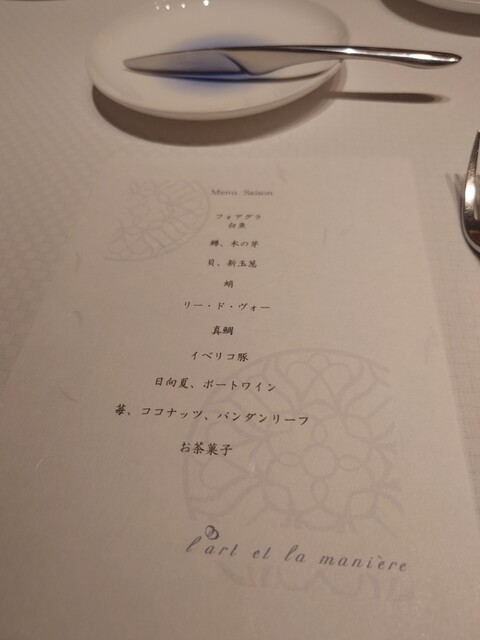 Menu Saison
フォアグラ
白魚
鱒、木の芽
貝、新玉葱
蛸
リー・ド・ヴォー
真鯛
イベリコ豚
日向夏、ポートワイン
苺、ココナッツ、パンダンリーフ
お茶菓子
l'art et la manière